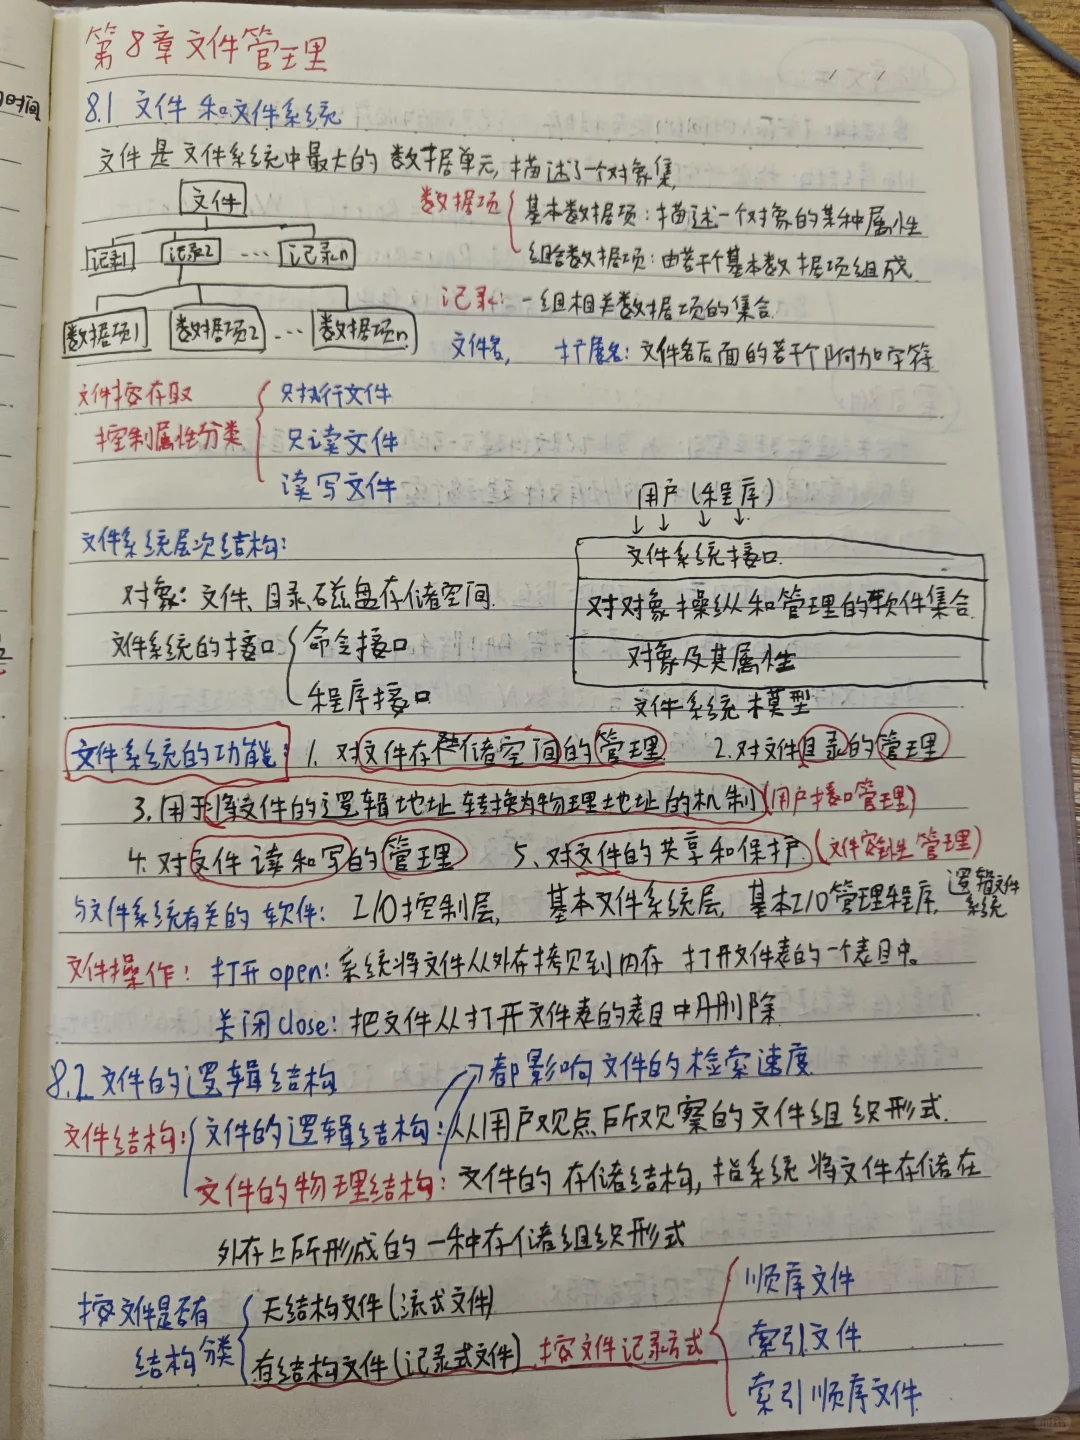 第8章文件管理
8.1 文件和文件系统
文件是文件系统中最大的数据单元,描述了一个对象集,
文件
数据项 基本数据项:描述一个对象的某种属性
记录1 记录2 ... 记录n
组合数据项:由若干个基本数据项组成
记录:一组相关数据项的集合
数据项1 数据项2 ... 数据项n
文件名, 扩展名:文件名后面的若干个附加字符
文件按存取
控制属性分类
只执行文件
只读文件
读写文件
用户(程序)
文件系统层次结构:
文件系统接口
对象:文件、目录、磁盘存储空间
对对象操纵和管理的软件集合
文件系统的接口 命令接口
程序接口
对象及其属性
文件系统模型
文件系统的功能: 1. 对文件存储空间的管理 2.对文件目录的管理
3.用于将文件的逻辑地址转换为物理地址的机制(用户接口管理)
4.对文件读和写的管理 5、对文件的共享和保护(文件安全性管理)
与文件系统有关的软件: I/O控制层, 基本文件系统层, 基本I/O管理程序, 逻辑文件
系统
文件操作: 打开open:系统将文件从外存拷贝到内存 打开文件表的一个表目中。
关闭close:把文件从打开文件表的表目中删除
8.2 文件的逻辑结构 都影响文件的检索速度
文件结构: 文件的逻辑结构:从用户观点所观察的文件组织形式.
文件的物理结构:文件的存储结构,指系统将文件存储在
外存上所形成的一种存储组织形式
按文件是否有
结构分类
无结构文件(流式文件)
有结构文件(记录式文件) 按文件记录方式
顺序文件
索引文件
索引顺序文件